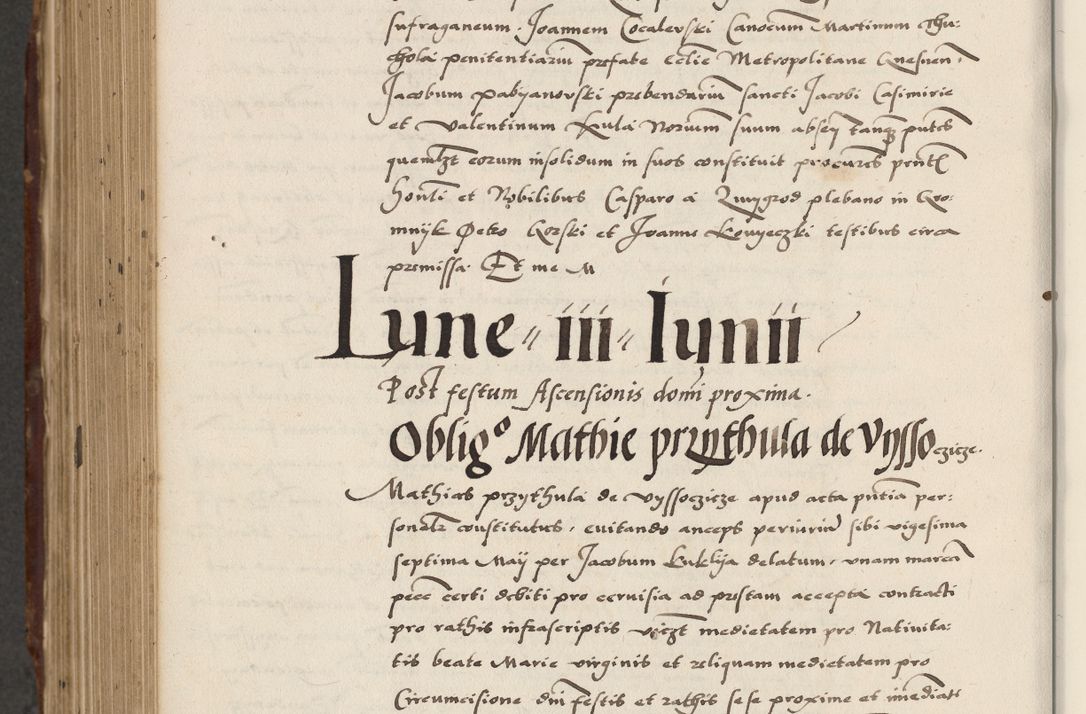 sufraganeum · Joannem Cocalevski Canocum Martinum Thu:
chola penitentiarium prefate Ecclie Metropolitane Gnesnen ·
Jacobum Pabyanovski prebendarium sancti Jacobi Casimirie
et Valentinum Kula Norium suum absen tanq putes
quemlzt eorum insolidum in suos constituit procures pntt
Honti et Nobilibus Casparo a Zwygrod plebano in Gro:
mnyk Petro Gorski et Joanne Lowyeczki testibus circa
premissa. Et me M
Lune iii Iunii
Post festum Ascensionis domi proxima.
Obligo Mathie przythula de Vysso czicze.
Mathias przythula de vyssoczicze apud acta pntia per:
sonalr constitutus, evitando anceps periuriu sibi vigesima
septima Maij per Jacobum Kuklija delatum, vnam marca
pecc certi debiti pro cervisia ad prestam accepta contracti
pro rathis infrascriptis vczt medietatem pro Nativita:
tis beate Marie virginis et reliquam medietatem pro
Circumcisione dni festis et rathis sese proxime et inmediate